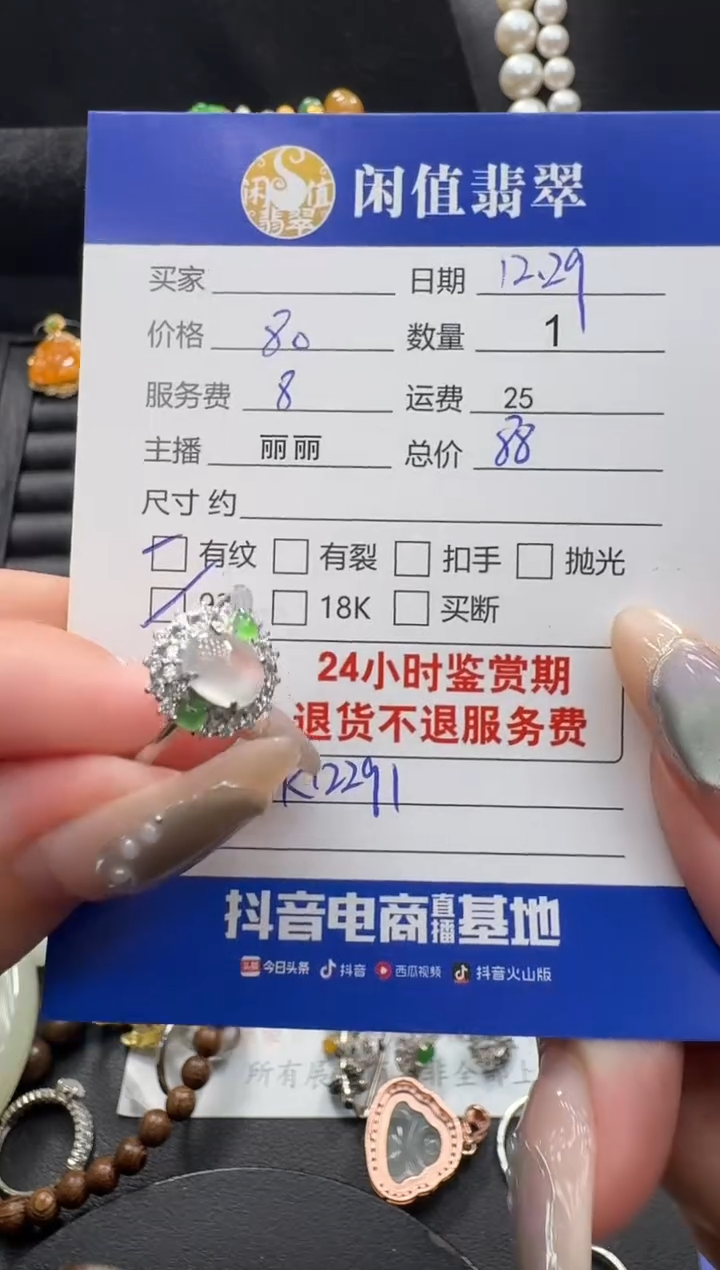 闲值翡翠
闲值翡翠
买家 日期 12.29
价格 80 数量 1
服务费 8 运费 25
主播 丽丽 总价 88
尺寸 约
有纹 有裂 扣手 抛光
18K 买断
24小时鉴赏期
退货不退服务费
K12291
抖音电商直播基地
今日头条 抖音 西瓜视频 抖音火山版
所有展